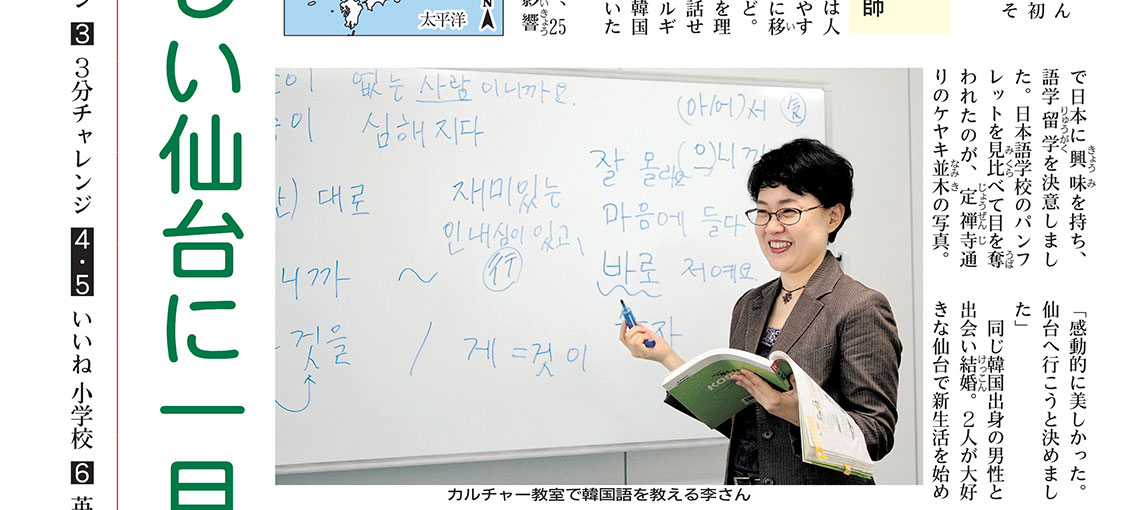 ん
初
そ
師
は人
やす
に移
ど。
を理
話せ
ルギ
韓国
いた
、25
影響
太平洋
N
で日本に興味を持ち、
語学留学を決意しまし
た。日本語学校のパンフ
レットを見比べて目を奪
われたのが、定禅寺通
りのケヤキ並木の写真。
「感動的に美しかった。
仙台へ行こうと決めまし
た」
同じ韓国出身の男性と
出会い結婚。2人が大好
きな仙台で新生活を始め
없는 사람이니까요.
심해지다
대로
니까 ~
것을 / 게 = 것이
재미있는
인내심이 있고,
行
(아/어)서
잘 몰라요 (으)니까
마음에 들다
바로 저예요
カルチャー教室で韓国語を教える李さん
い仙台に一日
3 3分チャレンジ 4・5 いいね 小学校 6 英